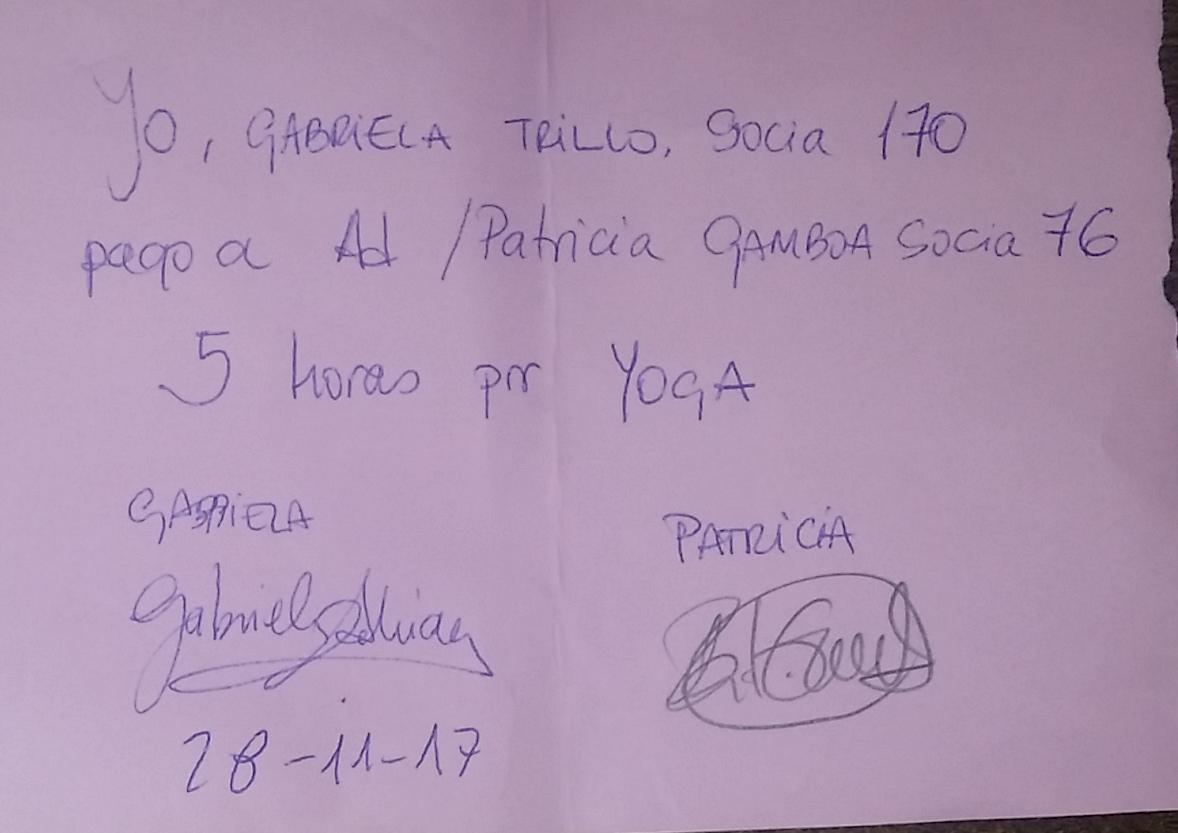 Yo, GABRIELA TRILLO, Socia 170
pago a Ad / Patricia GAMBOA Socia 76
5 horas por YOGA
GABRIELA
PATRICIA
Gabriela
28-11-17